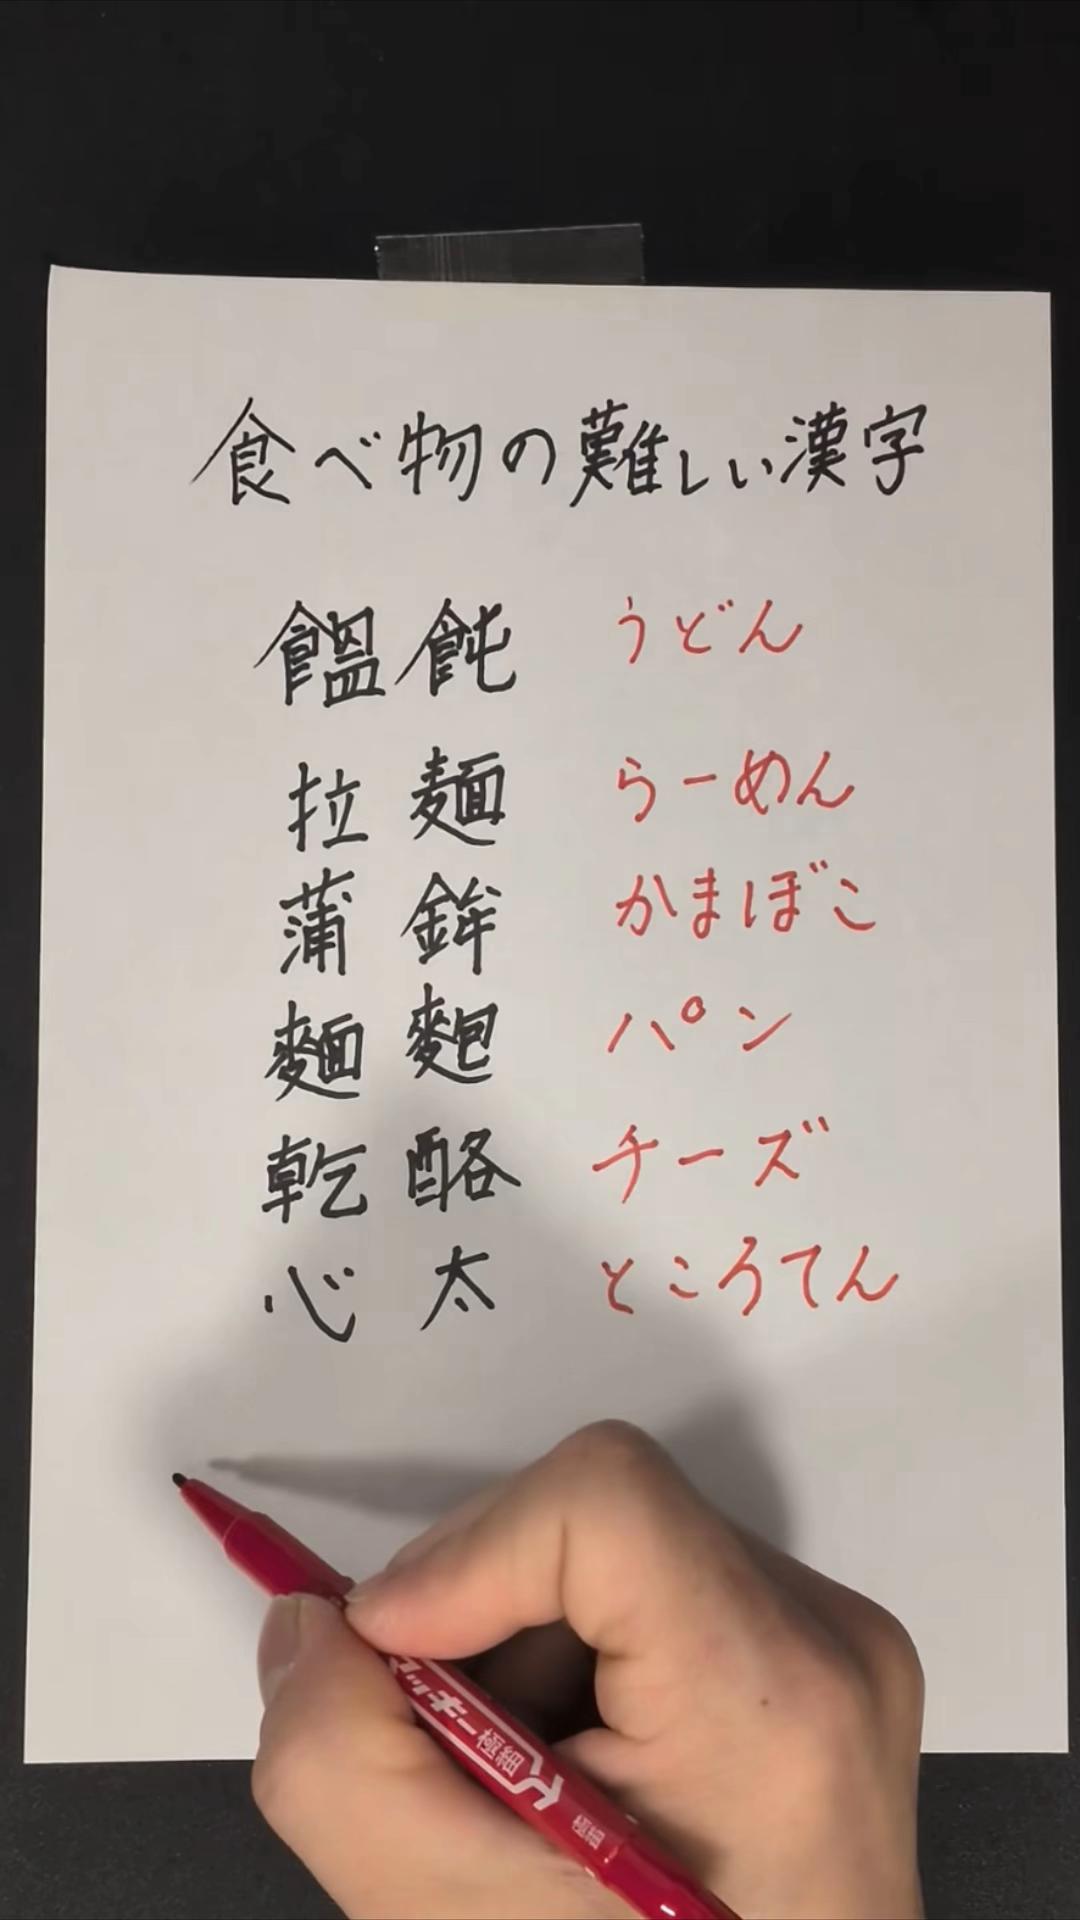 食べ物の難しい漢字
饂飩 うどん
拉麺 らーめん
蒲鉾 かまぼこ
麵麭 パン
乾酪 チーズ
心太 ところてん